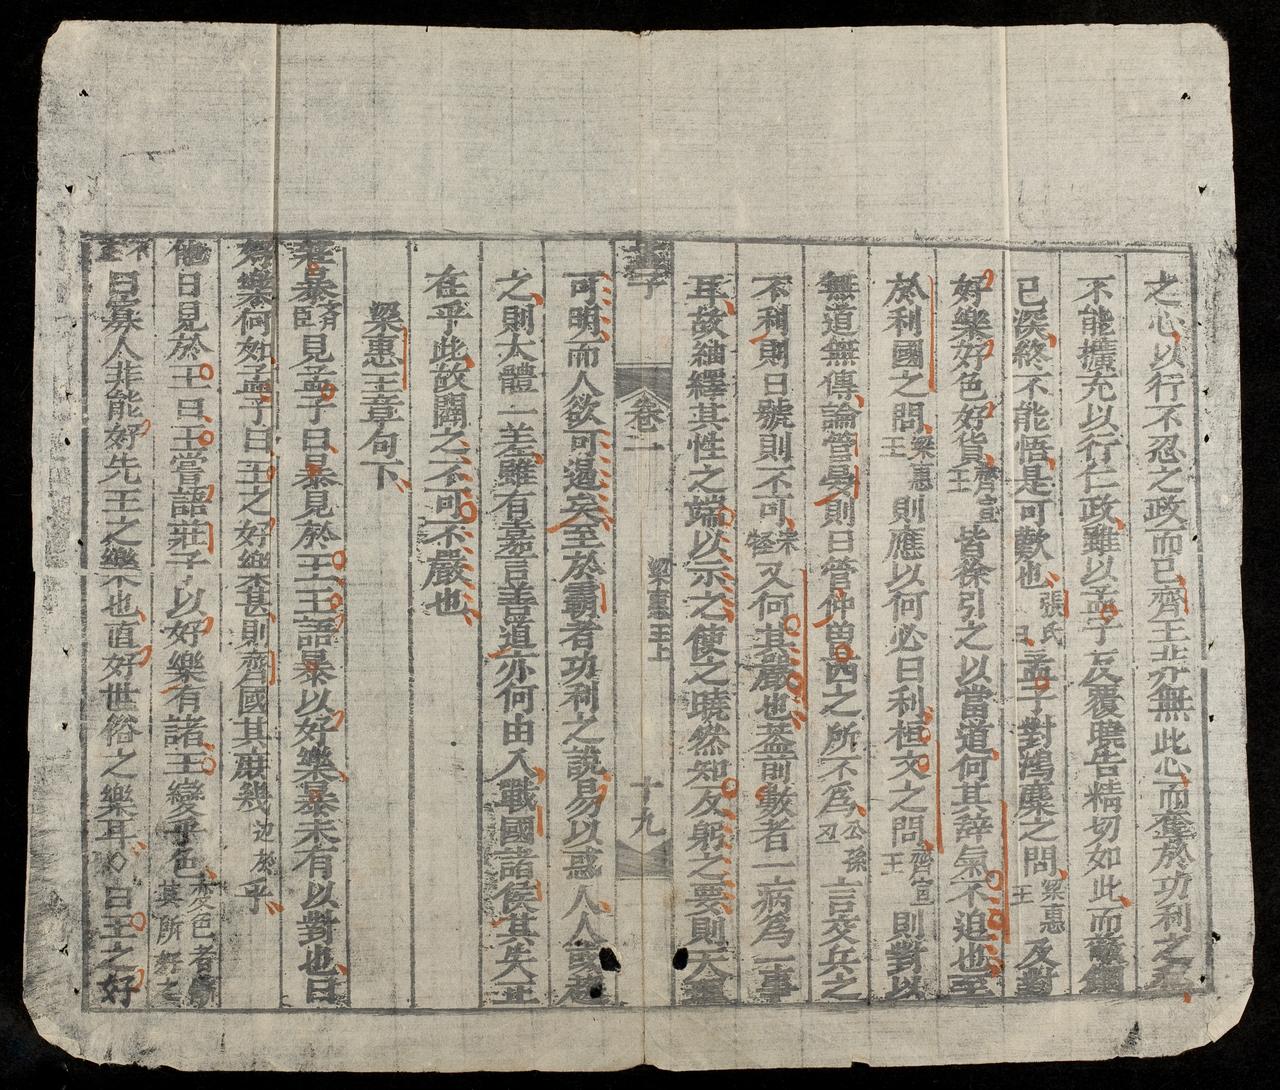 之心以行不忍之政而已齊王非無此心而奪於功利之私
不能擴充以行仁政雖以孟子反覆曉告精切如此而蔽錮
已深終不能悟是可歎也張氏曰孟子對鴻麋之問梁惠王及對
好樂好色好貨齊宣王皆徐引之以當道何其辭氣不迫也至
於利國之問梁惠王則應以何必曰利桓文之問齊宣王則對以
無道無傳論管晏則曰管仲曽西之所不爲公孫丑言交兵之
不利則曰號則不可宋牼又何其嚴也葢前數者一病爲一事
耳故紬繹其性之端以示之使之曉然知反躬之要則天理
孟子
卷二
梁惠王上
十九
可明而人欲可遏矣至於霸者功利之說易以惑人人或趨
之則大體一差雖有嘉言善道亦何由入戰國諸侯其失正
在乎此故闢之不可不嚴也
梁惠王章句下
莊暴齊臣見孟子曰暴見於王王語暴以好樂暴未有以對也曰
好樂何如孟子曰王之好樂甚則齊國其庶幾近於乎
他日見於王曰王嘗語莊子以好樂有諸王變乎色變色者慚其所好之
不正曰寡人非能好先王之樂也直好世俗之樂耳曰王之好